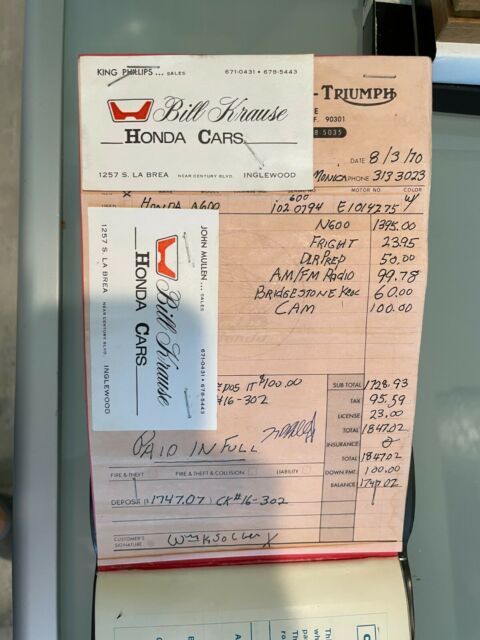 KING PHILLIPS ... SALES 671-0431 • 678-5443
Bill Krause
HONDA CARS
1257 S. LA BREA NEAR CENTURY BLVD. INGLEWOOD
- TRIUMPH
F. 90301
8 5035
DATE 8/3/70
MONICA PHONE 313 3023
MOTOR NO. COLOR
USED HONDA N600 600 1020794 E1014275 W
N600 1395.00
FRIGHT 23.95
DLR PREP 50.00
AM/FM RADIO 99.78
BRIDGESTONE 60.00
CAM 100.00
JOHN MULLEN ... SALES 671-0431 • 678-5443
Bill Krause
HONDA CARS
1257 S. LA BREA NEAR CENTURY BLVD. INGLEWOOD
EPOSIT $100.00
#16-302
SUB-TOTAL 1728.93
TAX 95.59
LICENSE 23.00
TOTAL 1847.02
INSURANCE
TOTAL 1847.02
DOWN PMT. 100.00
BALANCE 1747.02
PAID IN FULL
FIRE & THEFT FIRE & THEFT & COLLISION LIABILITY
DEPOSIT $ 1747.07 CK#16-302
CUSTOMER'S
SIGNATURE
X